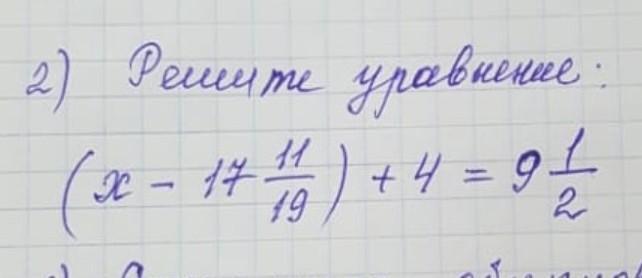 2) Решите уравнение:
(x - 17 11/19) + 4 = 9 1/2